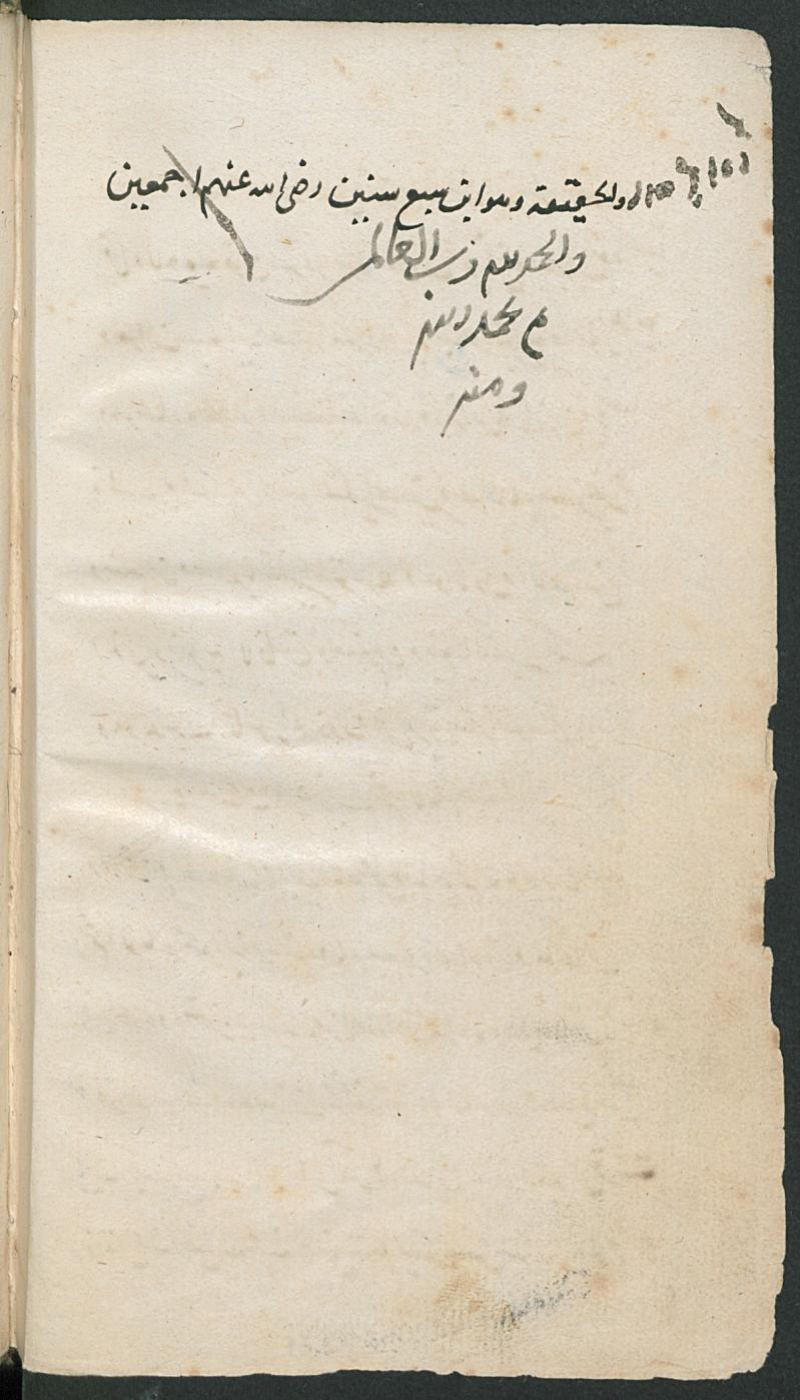 والحقيقة وهو ابن سبع سنين رضي الله عنهم اجمعين
والحمد لله رب العالمين
م بحمد الله
ومنه